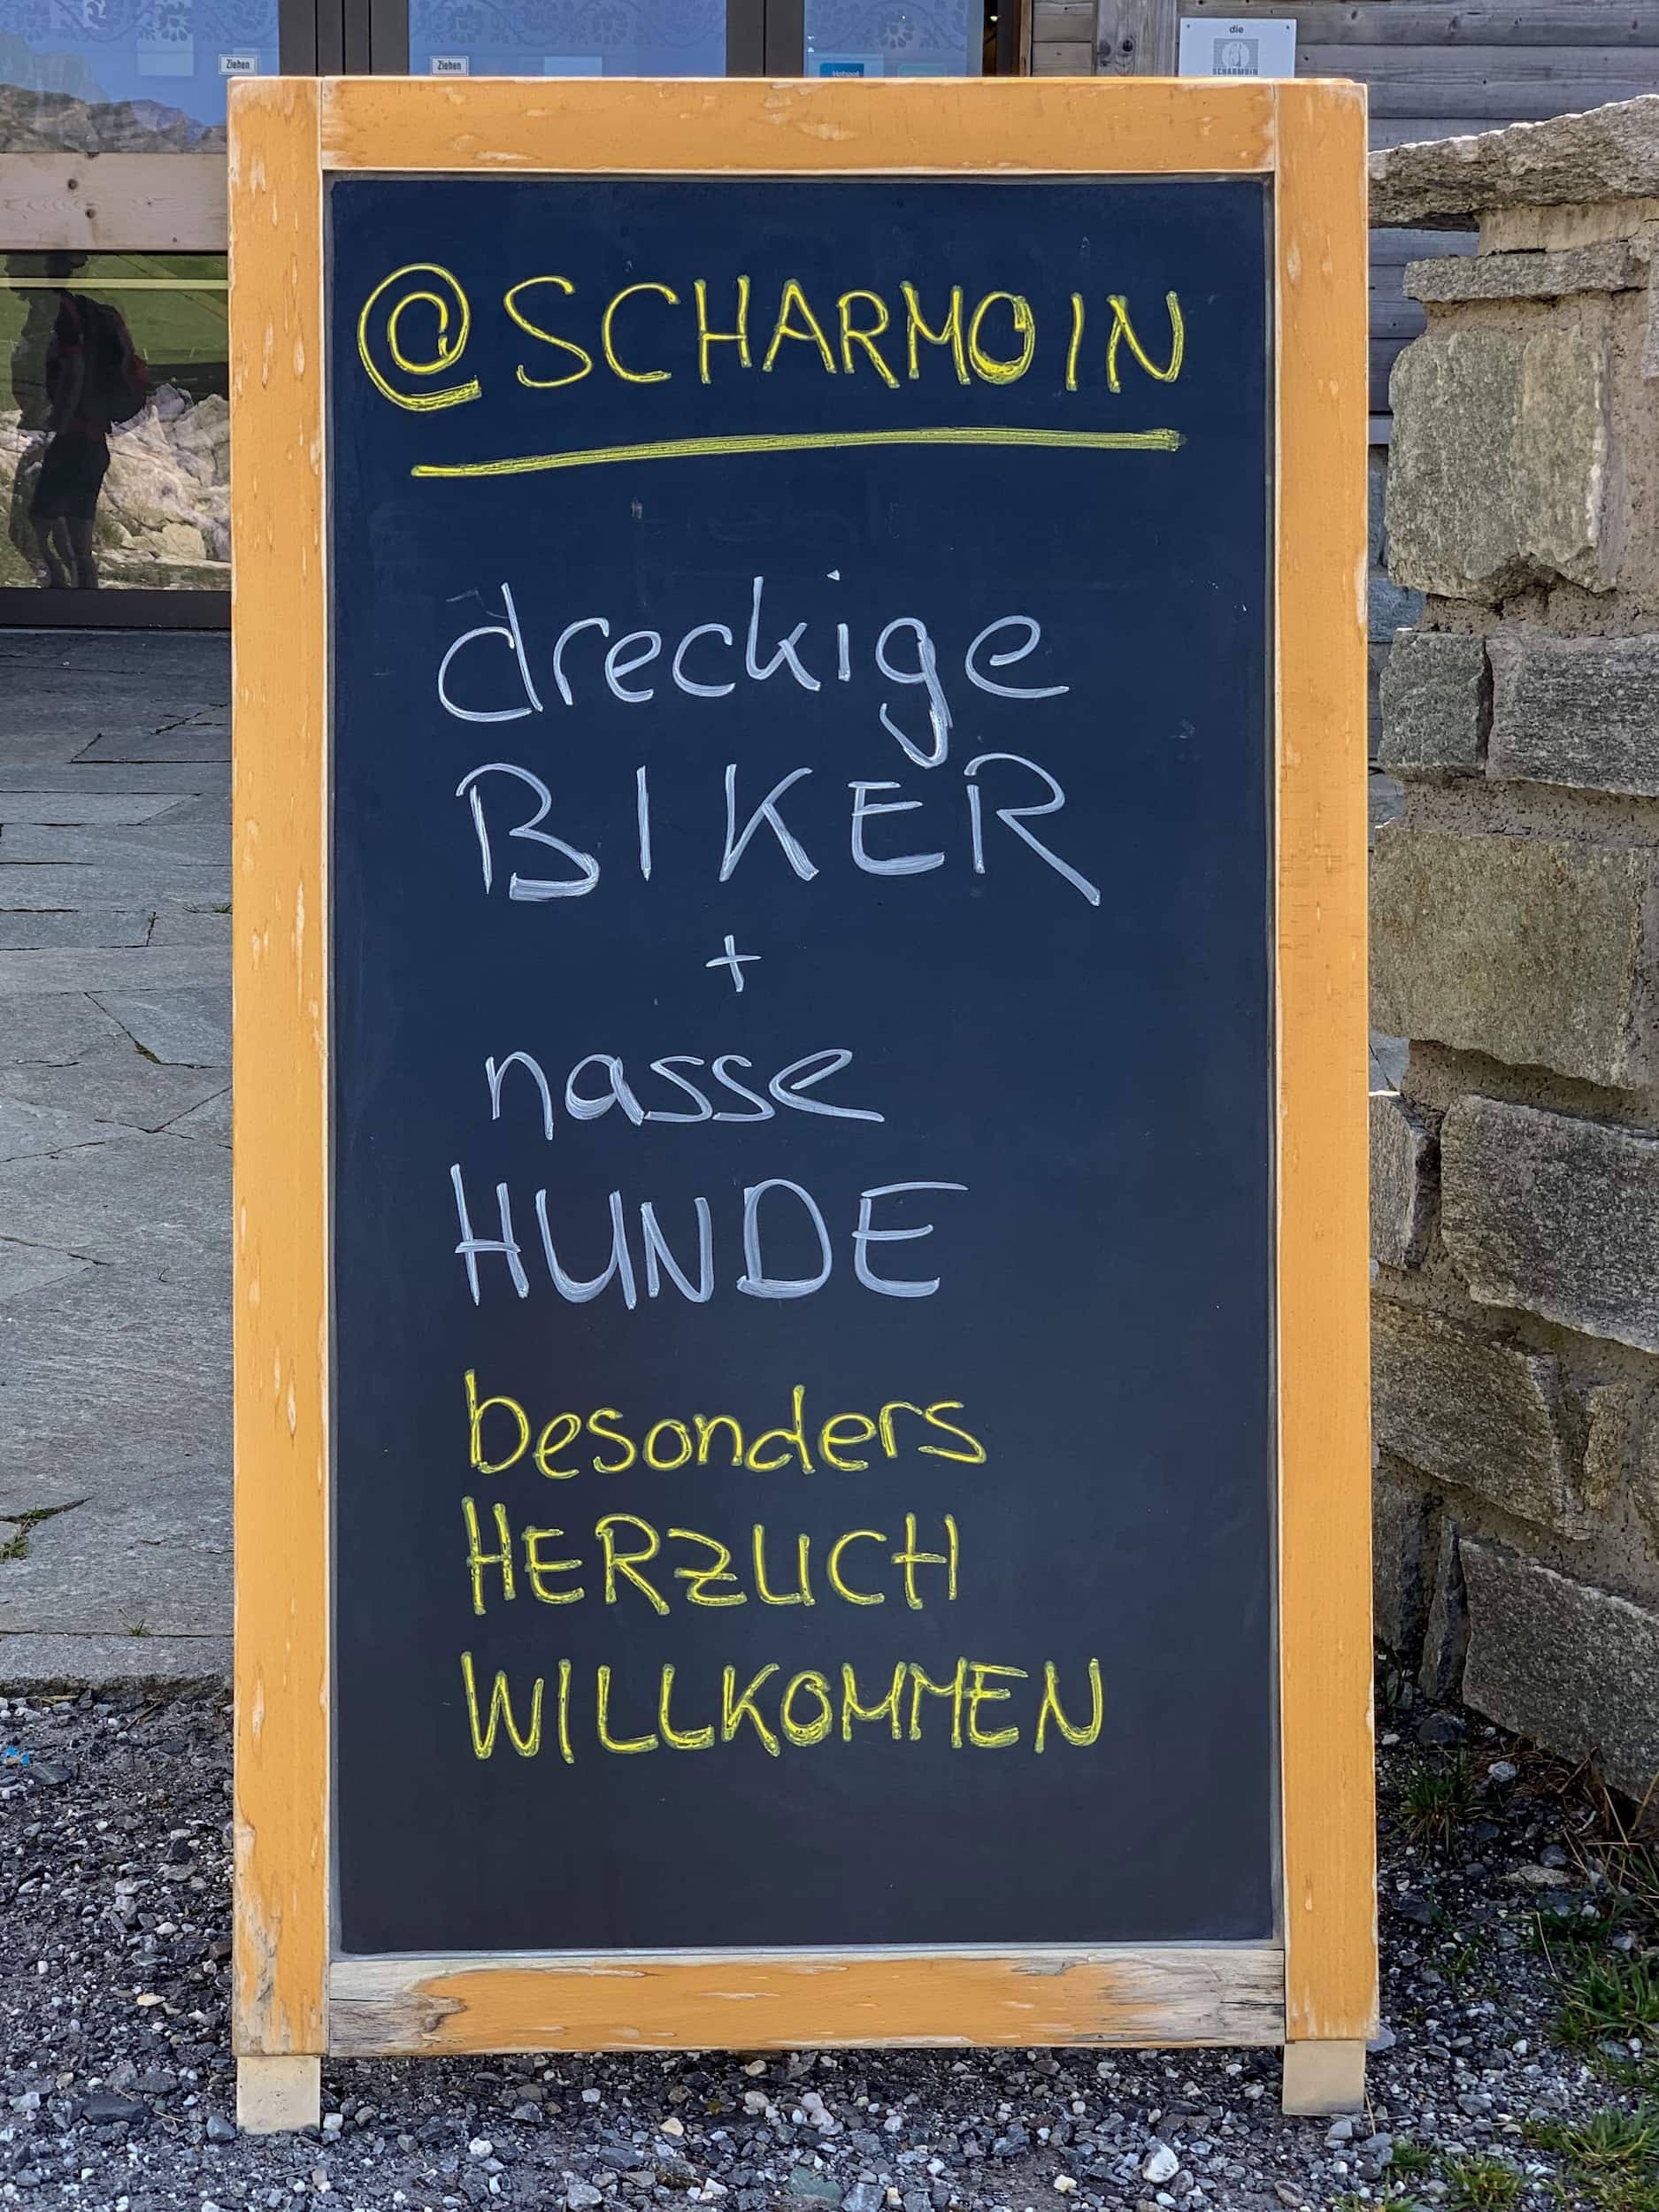 Ziehen
Ziehen
die
SCHARMOIN
@SCHARMOIN
dreckige
BIKER
+
nasse
HUNDE
besonders
HERZLICH
WILLKOMMEN